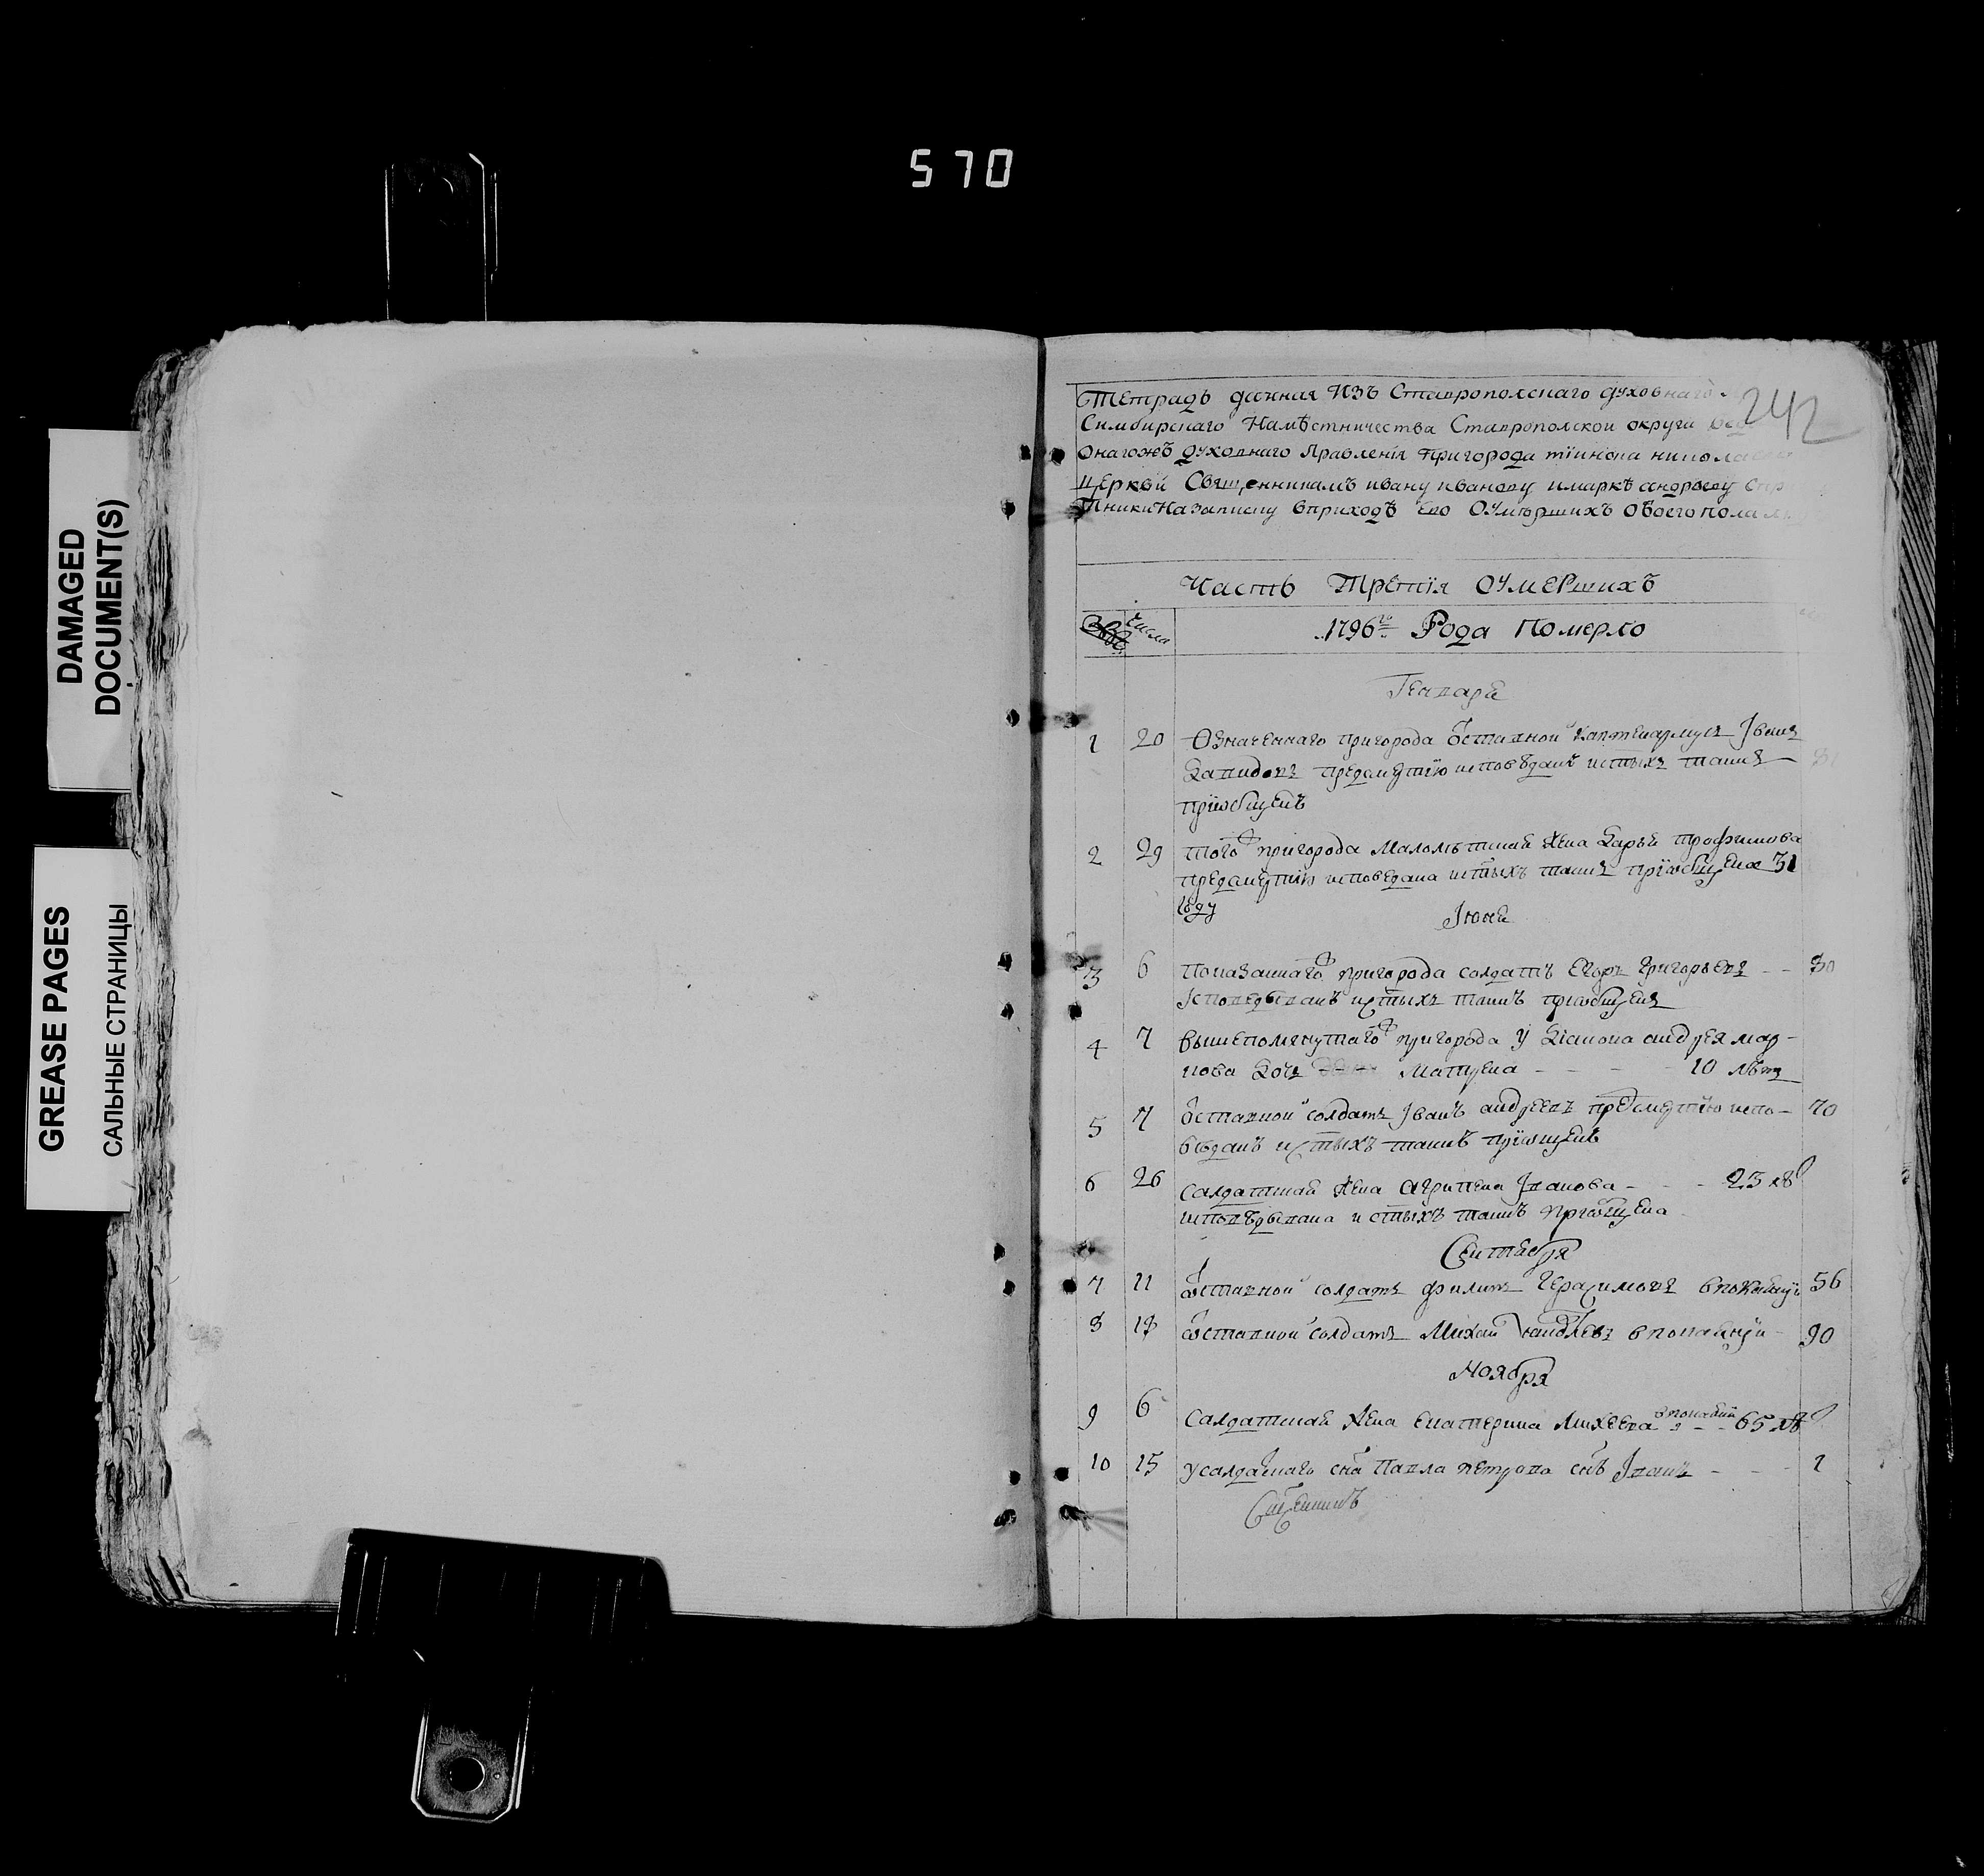 570
DAMAGED
DOCUMENT(S)
GREASE PAGES
САЛЬНЫЕ СТРАНИЦЫ
242
Тетрадь данная Изъ Ставрополскаго духовнаго
Симбирскаго Намѣстничества Ставрополской округи
Онагожъ духовнаго Правленія пригорода тіинска николае
церкви Священникамъ ивану иванову имаркѣ андрѣеву
На записку вприходѣ Его Оумершихъ Обоего пола
Часть Третія Оумершихъ
Числа
1796го Года Померло
Генваря
1 20 Означеннаго пригорода ѿставной Каптенармусъ Іванъ
предсмертію исповѣданъ истыхъ таинъ
пріѡбщенъ
2 29 того пригорода жена Дарья трофимова
предсмертію исповедана истыхъ таинъ пріѡбщена 31
году
Іюня
3 6 Показаннаго пригорода солдатъ Егоръ Григорьевъ - - 30
Ісповедыванъ истыхъ таинъ приѡбщенъ
4 7 вышепомянутаго пригорода у Діакона андрея мар-
кова дочь Матрена - - - - 10 лѣтъ
5 7 ѿставной солдатъ Іванъ андреевъ предсмертію испо- 70
вѣданъ истыхъ таинъ пріѡбщенъ
6 26 Салдатская жена Агрипена Іванова - - - 25 лѣ
исповѣдывана и стыхъ таинъ приѡбщена
Сентебря
7 11 ѿставной солдатъ филипъ Герасимовъ впокаяніи 56
8 18 ѿставной солдатъ Михаи впокаяніи - 90
Ноября
9 6 Салдатская жена Екатерина Михеева впокаяніи - - 65 лѣ
10 15 усалдацкаго сна Павла петрова снъ Іванъ - - - 1
Сщенникъ